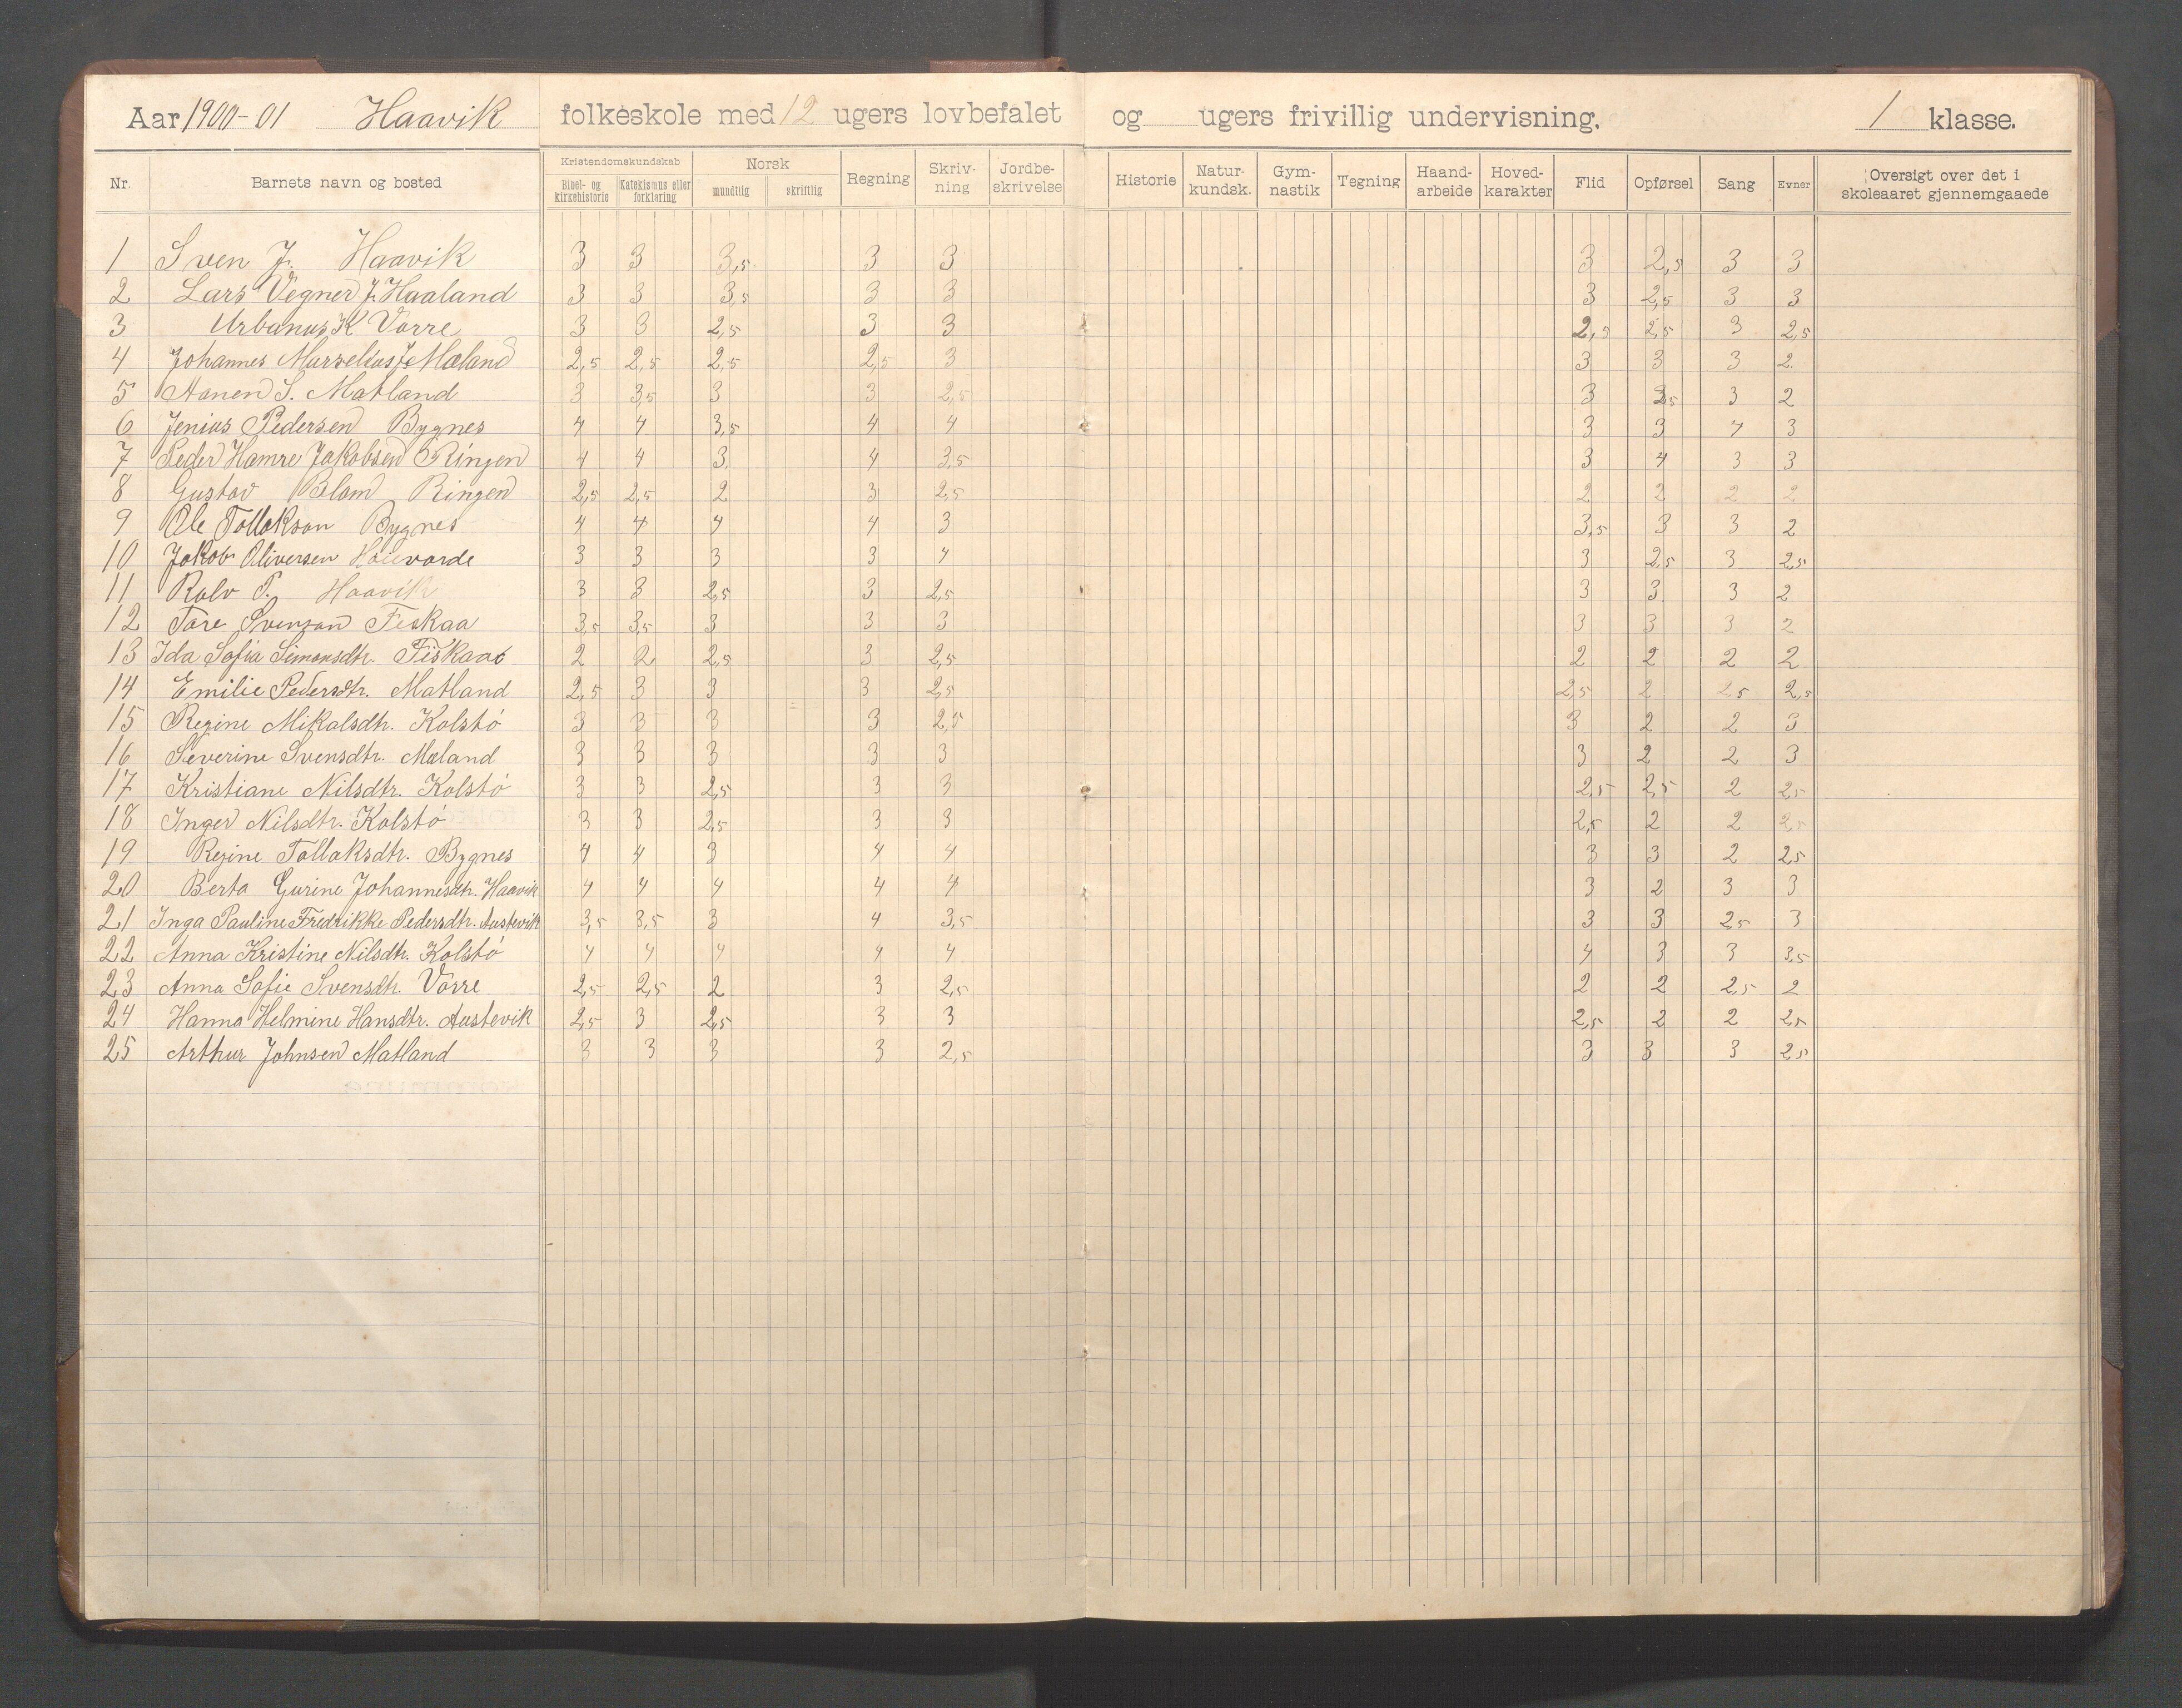 Aar 1900-01 Haavik folkeskole med 12 ugers lovbefalet og ugers frivillig undervisning. 1 klasse.
Nr. Barnets navn og bosted Kristendomskundskab Bibel- og kirkehistorie Katekismus eller forklaring Norsk mundtlig skriftlig Regning Skriv-ning Jordbe-skrivelse Historie Natur-kundsk. Gym-nastik Tegning Haand-arbeide Hoved-karakter Flid Opførsel Sang Evner Oversigt over det i skoleaaret gjennemgaaede
1 Sven J. Haavik 3 3 3,5 3 3 3 2,5 3 3
2 Lars Vegner J. Haaland 3 3 3,5 3 3 3 2,5 3 3
3 Urbanus K Vorre 3 3 2,5 3 3 2,5 2,5 3 2,5
4 Johannes Marselius J. Mæland 2,5 2,5 2,5 2,5 3 3 3 3 2
5 Aanen S. Matland 3 3,5 3 3 2,5 3 3 2
6 Jenius Pedersen Bygnes 4 4 3,5 4 4 3 3 4 3
7 Peder Hamre Jakobsen Ringen 4 4 3 4 3,5 3 4 3 3
8 Gustav Blom Ringen 2,5 2,5 2 3 2,5 2 2 2 2
9 Ole Tollakson Bygnes 4 4 4 4 3 3,5 3 3 2
10 Jakob Oliversen 3 3 3 3 4 3 2,5 3 2,5
11 Rolv P. Haavik 3 3 2,5 3 2,5 3 3 3 2
12 Tore Svenson Fiskaa 3,5 3,5 3 3 3 3 3 3 2
13 Ida Sofia Simonsdtr. Fiskaa 2 2 2,5 3 2,5 2 2 2 2
14 Emilie Pedersdtr. Matland 2,5 3 3 3 2,5 2,5 2 2,5 2,5
15 Regine Mikalsdtr. Kolstó 3 3 3 3 2,5 3 2 2 3
16 Severine Svensdtr. Mæland 3 3 3 3 3 3 2 2 3
17 Kristiane Nilsdtr. Kolstó 3 3 2,5 3 3 2,5 2,5 2 2,5
18 Inger Nilsdtr. Kolstó 3 3 2,5 3 3 2,5 2 2 2,5
19 Regine Tollaksdtr. Bygnes 4 4 3 4 4 3 3 2 2,5
20 Berta Gurine Johannesdtr. Haavik 4 4 4 4 4 3 2 3 3
21 Inga Pauline Fredrikke Pedersdtr. Austevik 3,5 3,5 3 4 3,5 3 3 2,5 3
22 Anna Kristine Nilsdtr. Kolstó 4 4 4 4 4 4 3 3 3,5
23 Anna Sofie Svensdtr. Vorre 2,5 2,5 2 3 2,5 2 2 2,5 2
24 Hanna Helmine Hansdtr. Austevik 2,5 3 2,5 3 3 2,5 2 2 2,5
25 Arthur Johnsen Matland 3 3 3 3 2,5 3 3 3 2,5